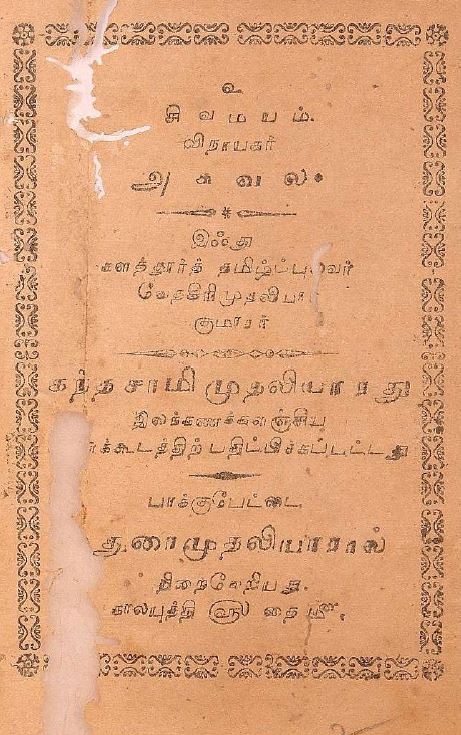 உ
சிவமயம்.
விநாயகர்
அகவல்.
இஃது
களத்தூர்த் தமிழ்ப்புலவர்
வேதகிரிமுதலியா
குமாரர்
கந்தசாமிமுதலியாரது
இலக்கணக்களஞ்சிய
க்கூடத்திற் பதிப்பிக்கப்பட்டது
பாக்குபேட்டை
துரைமுதலியாரால்
நிறைவேறியது.
காலயுத்தி ௵ தை ௴.